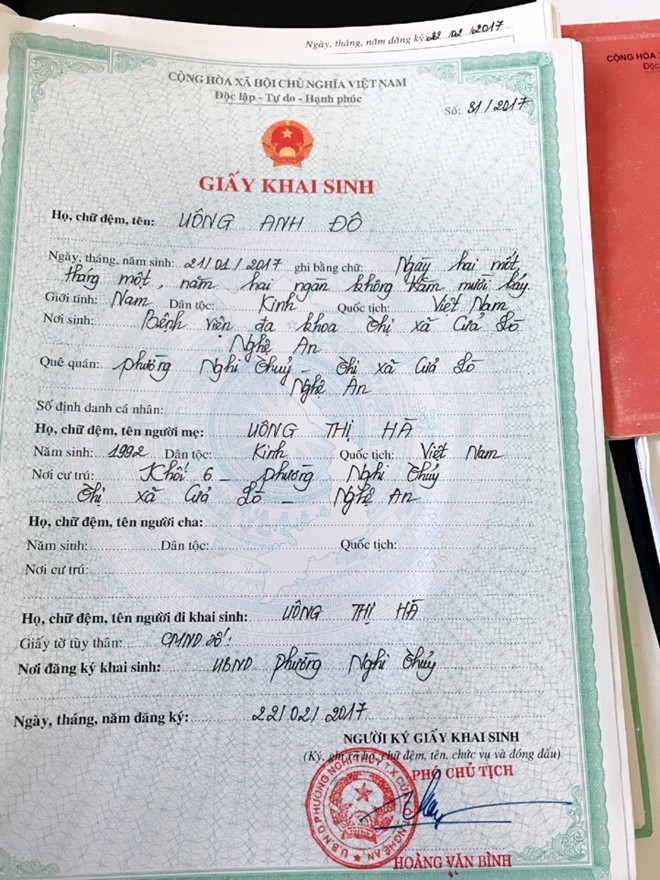 Ngày, tháng, năm đăng ký: 22/02/2017
CỘNG HÒA XÃ HỘI CHỦ NGHĨA VIỆT NAM
Độc lập - Tự do - Hạnh phúc
Số: 31/2017
GIẤY KHAI SINH
Họ, chữ đệm, tên: UÔNG ANH ĐÔ
Ngày, tháng, năm sinh: 21/01/2017 ghi bằng chữ: Ngày hai mốt,
tháng một, năm hai ngàn không trăm mười bảy
Giới tính: Nam Dân tộc: Kinh Quốc tịch: Việt Nam
Nơi sinh: Bệnh viện đa khoa thị xã Cửa Lò
Nghệ An
Quê quán: phường Nghi Thuỷ - thị xã Cửa Lò
Nghệ An
Số định danh cá nhân:
Họ, chữ đệm, tên người mẹ: UÔNG THỊ HÀ
Năm sinh: 1992 Dân tộc: Kinh Quốc tịch: Việt Nam
Nơi cư trú: Khối 6 - phường Nghi Thủy
thị xã Cửa Lò - Nghệ An
Họ, chữ đệm, tên người cha:
Năm sinh: Dân tộc: Quốc tịch:
Nơi cư trú:
Họ, chữ đệm, tên người đi khai sinh: UÔNG THỊ HÀ
Giấy tờ tùy thân: CMND số:
Nơi đăng ký khai sinh: UBND phường Nghi Thủy
Ngày, tháng, năm đăng ký: 22/02/2017
NGƯỜI KÝ GIẤY KHAI SINH
(Ký, ghi rõ họ, chữ đệm, tên, chức vụ và đóng dấu)
PHÓ CHỦ TỊCH
U.B.N.D PHƯỜNG NGHI THỦY T.X CỬA LÒ NGHỆ AN
HOÀNG VĂN BÌNH
CỘNG HÒA X
Độc